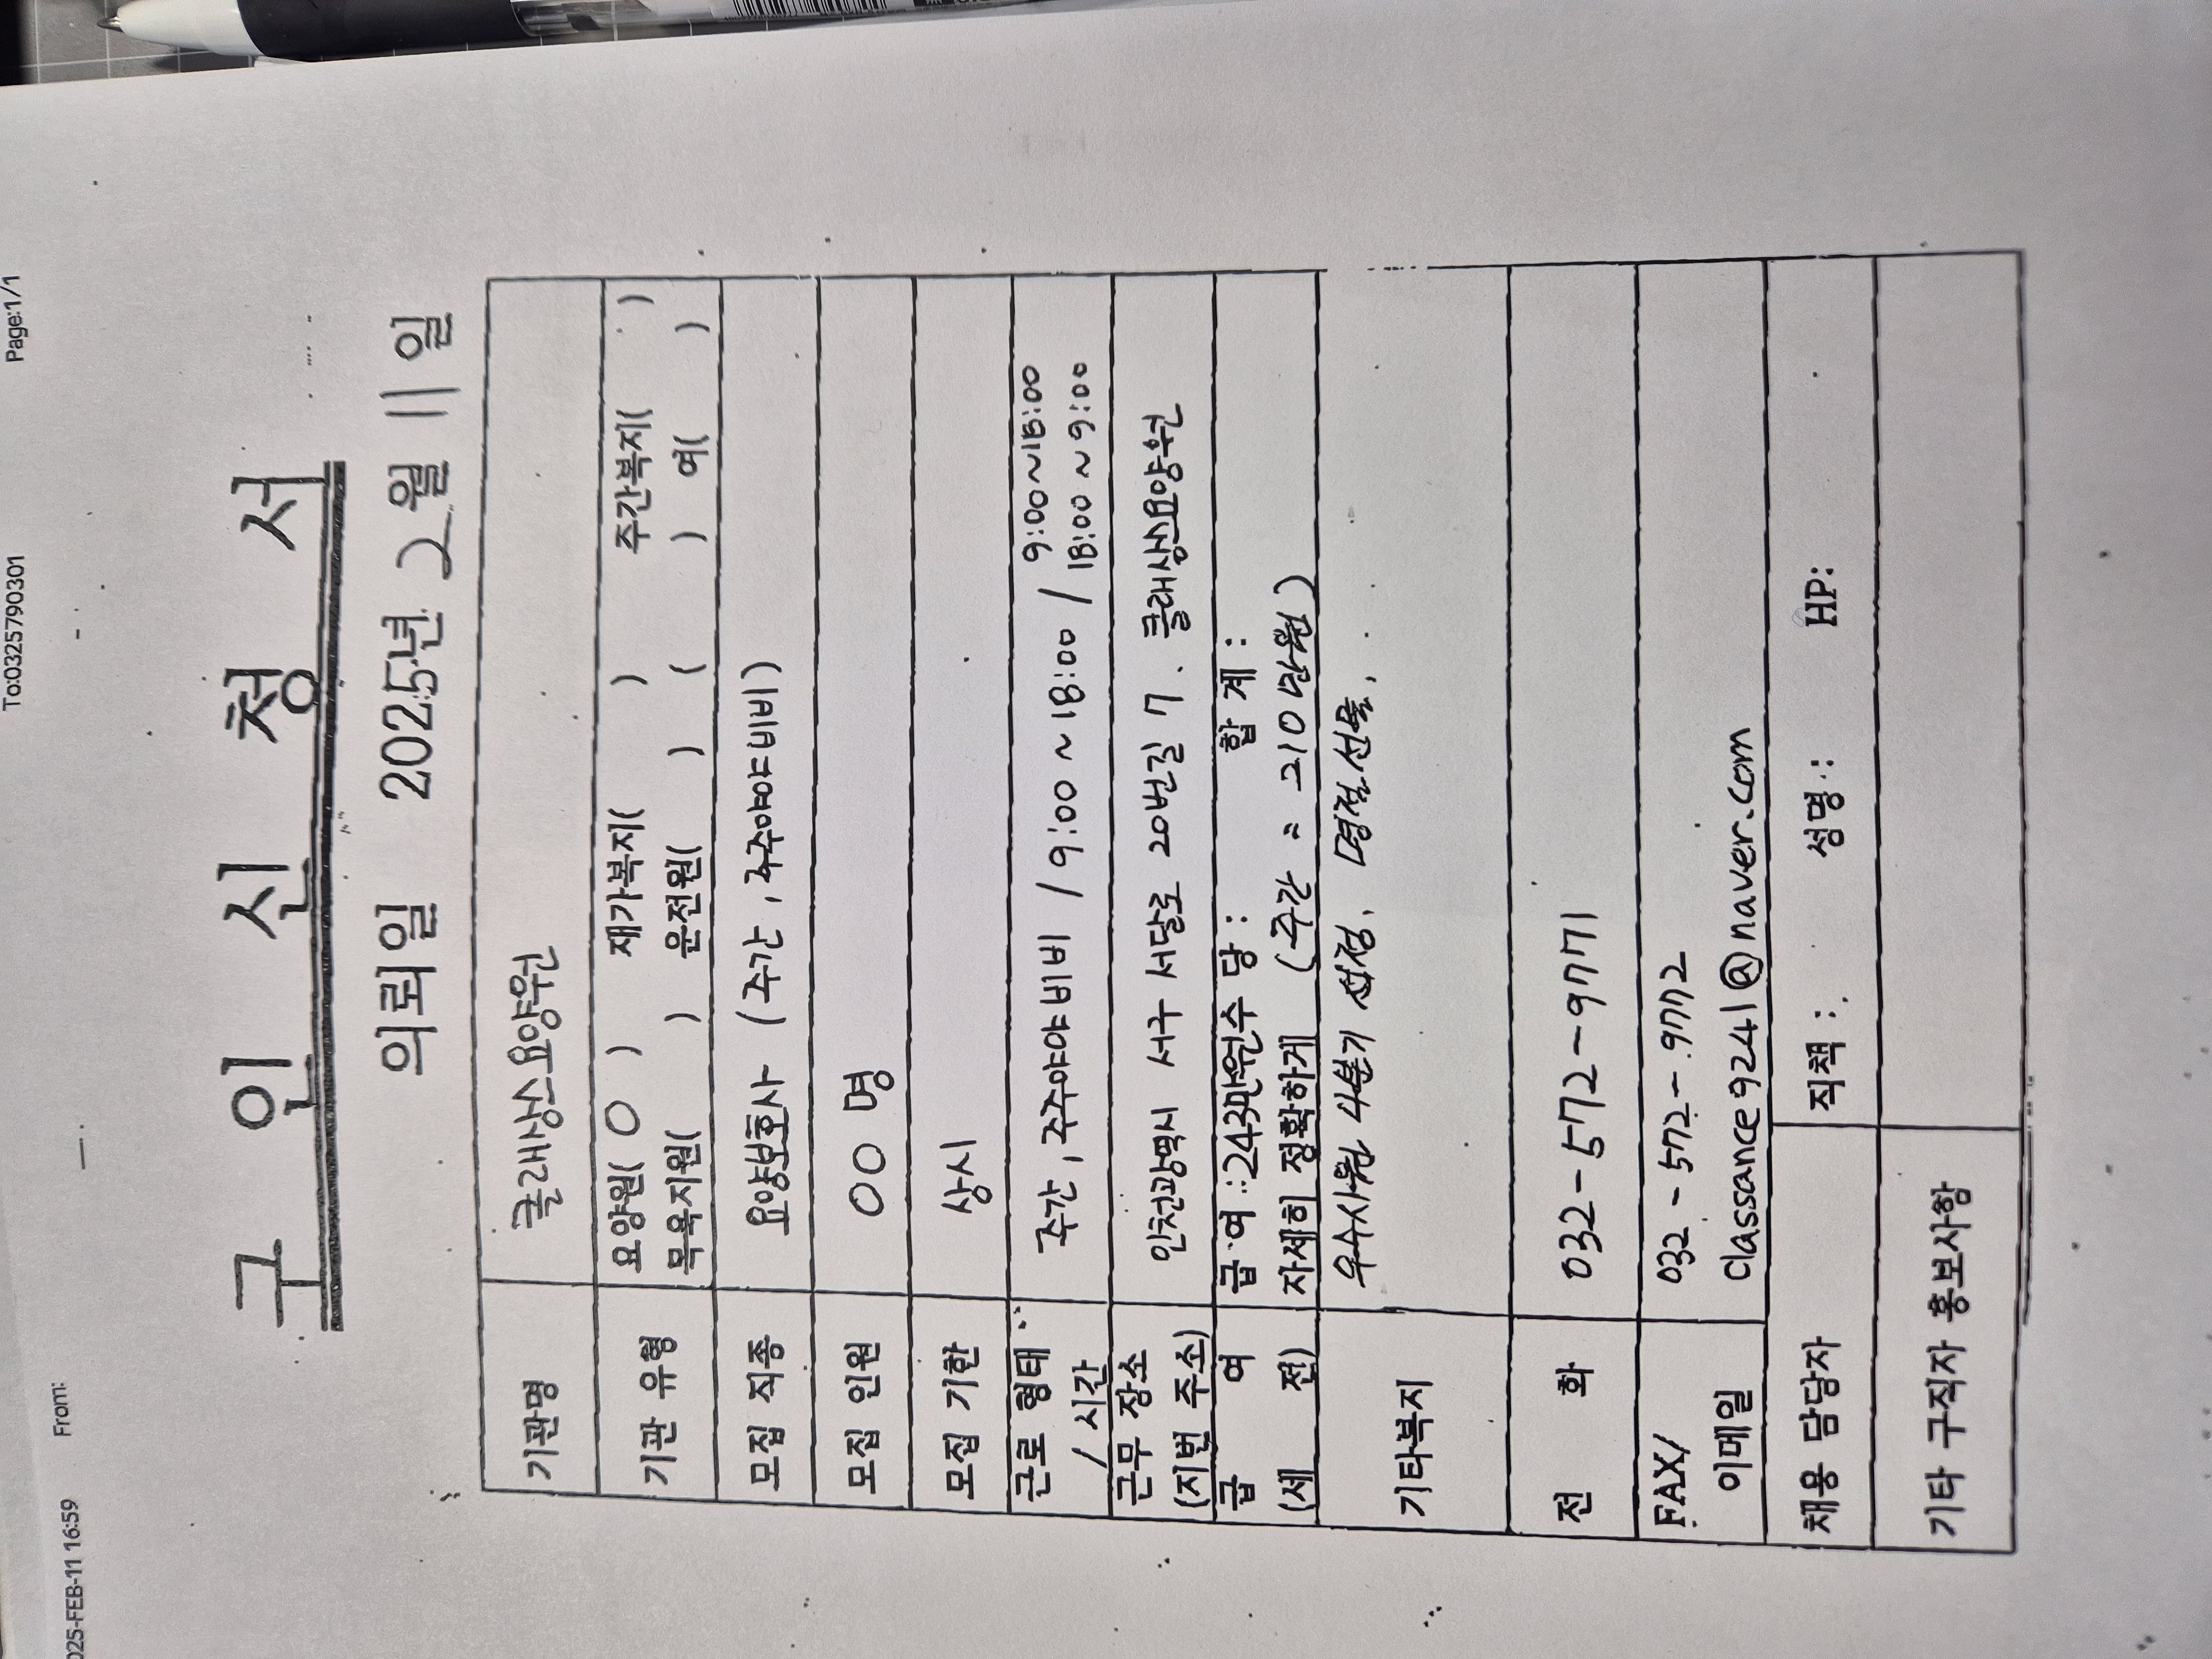 025-FEB-11 16:59 From: To:0325790301 Page:1/1
구 인 신 청 서
의뢰일 2025년 2월 11일
기관명 클래상스요양원
기관 유형 요양원( O ) 재가복지( ) 주간복지( )
목욕지원( ) 운전원( ) ( ) 여( )
모집 직종 요양보호사 (주간, 주주야야비비)
모집 인원 00명
모집 기한 상시
근로 형태 / 시간 주간, 주주야야비비 / 9:00~18:00 / 9:00~18:00
18:00~9:00
근무 장소 (지번 주소) 인천광역시 서구 서달로 20번길 7. 클래상스요양원
급 여 급 여 : 243만원 수 당 : 합 계 :
(세 전) 자세히 정확하게 (주간 = 210만원)
기타복지 우수사원 4분기 선정, 명절선물,
전 화 032-572-9771
FAX/ 032-572-9772
이메일 classance9241@naver.com
채용 담당자 직책 : 성명 : HP:
기타 구직자 홍보사항